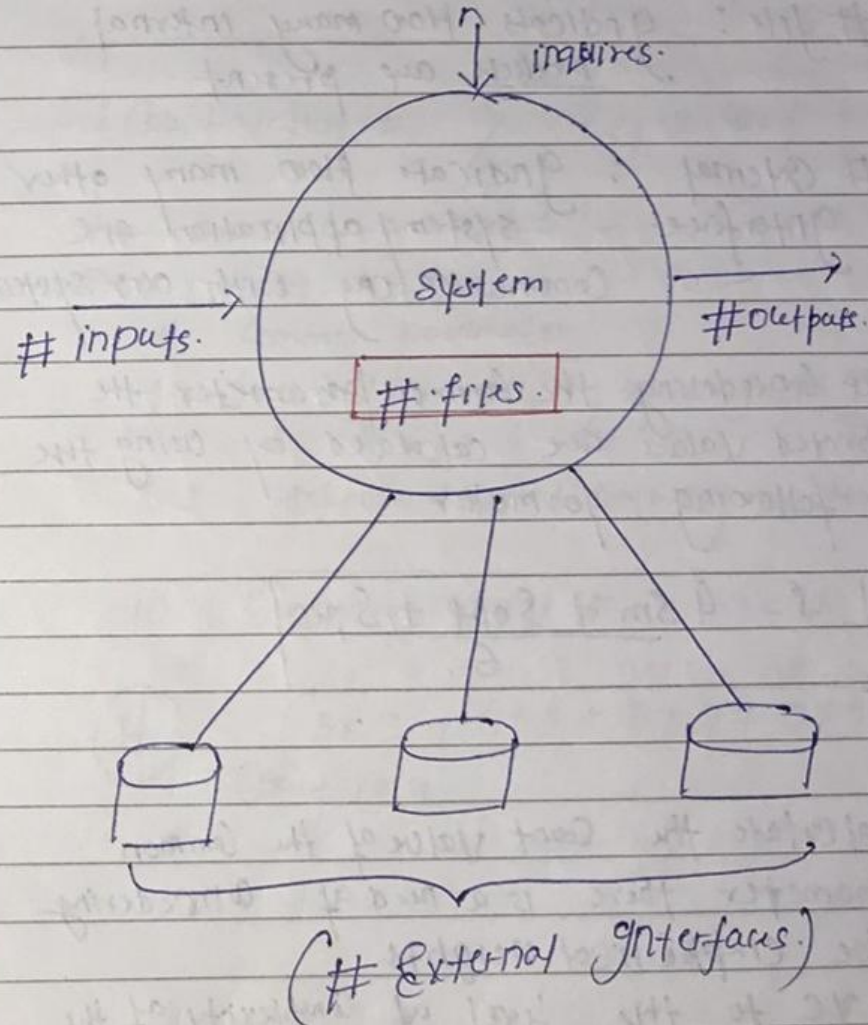 inquires.
system
# inputs.
# outputs.
# files.
(# External Interfaces.)